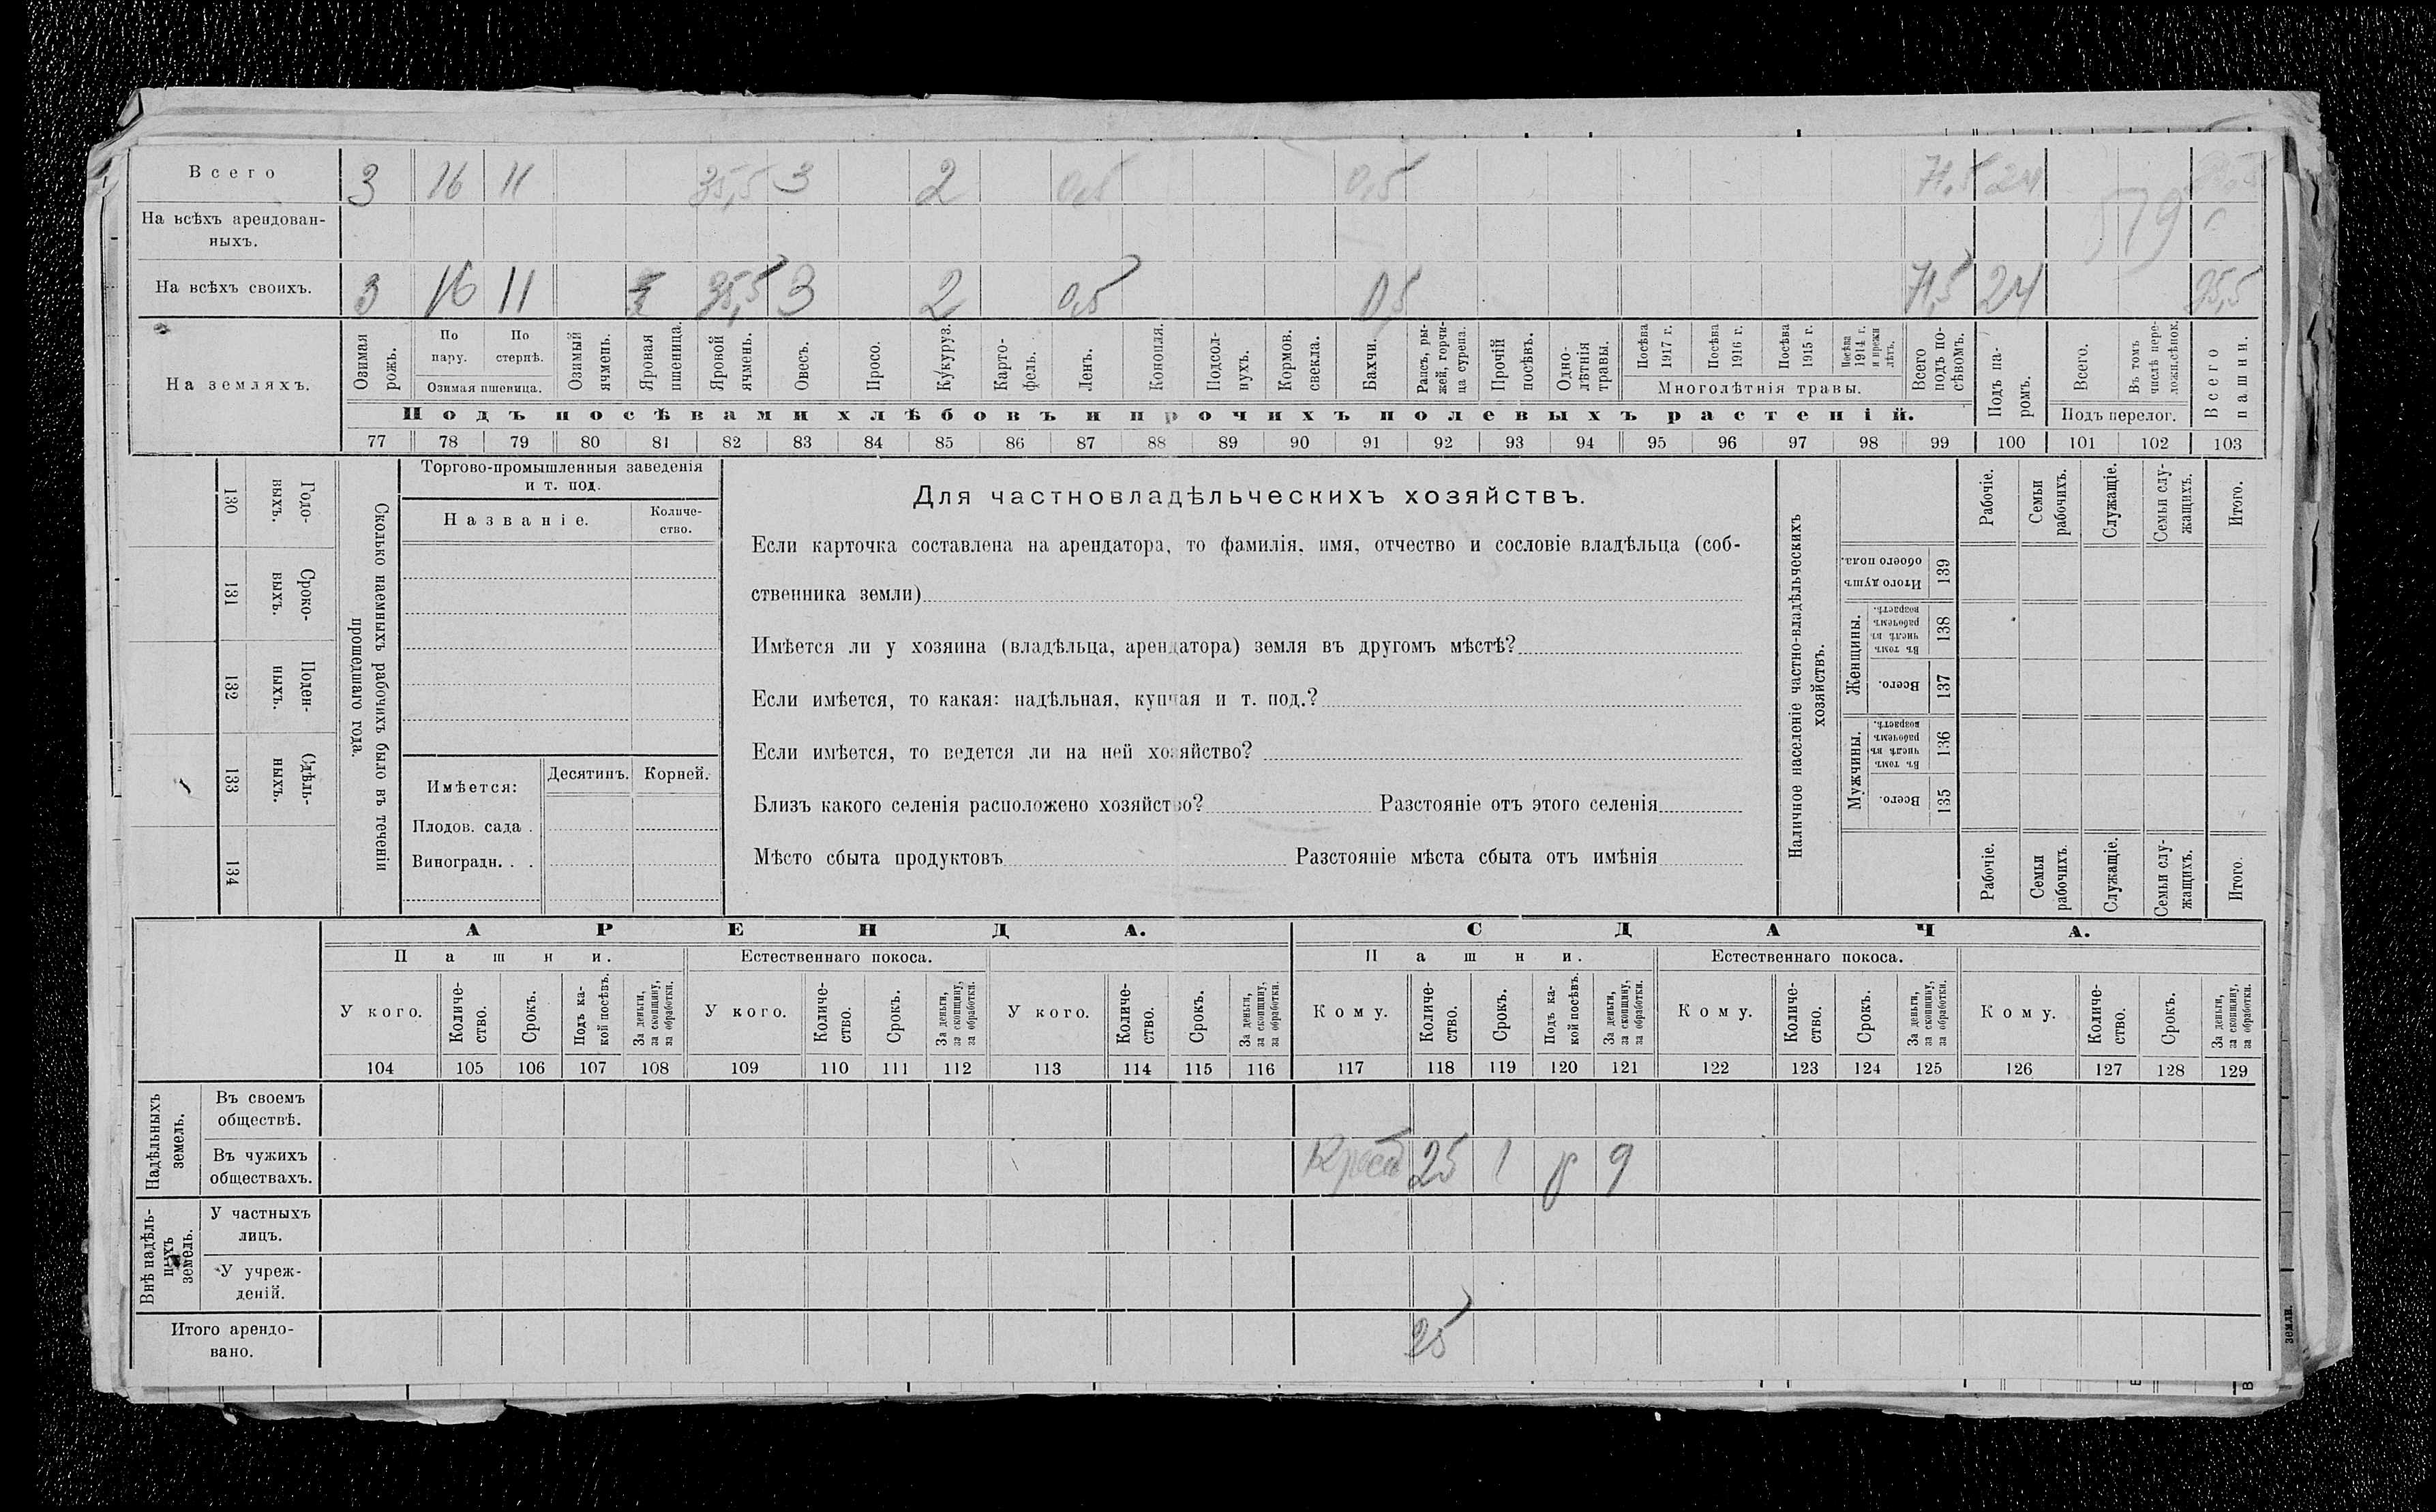 Всего 3 16 11 35,5 3 2 0,5 0,5 71,5 24
На всѣхъ арендован-
ныхъ.
579
На всѣхъ своихъ. 3 16 11 35,5 3 2 0,5 0,5 71,5 24 95,5
На земляхъ.
Озимая рожь.
По пару.
По стернѣ.
Озимая пшеница.
Озимый ячмень.
Яровая пшеница.
Яровой ячмень.
Овесъ.
Просо.
Кукуруз.
Карто-
фель.
Ленъ.
Конопля.
Подсол-
нухъ.
Кормов.
свекла.
Бахчи.
Рапсъ, ры-
жей, горчи-
ца сурепа.
Прочій
посѣвъ.
Одно-
лѣтнія
травы.
Посѣва 1917 г.
Посѣва 1916 г.
Посѣва 1915 г.
Посѣва
1914 г.
и прежн
лѣтъ.
Многолѣтнія травы.
Всего
подъ по-
сѣвомъ.
Подъ па-
ромъ.
Всего.
Въ томъ
числѣ пере-
ложн.сѣнок.
Подъ перелог.
Всего
пашни.
Подъ посѣвами хлѣбовъ и прочихъ полевыхъ растеній.
77 78 79 80 81 82 83 84 85 86 87 88 89 90 91 92 93 94 95 96 97 98 99 100 101 102 103
Годо-
выхъ.
130
Сроко-
выхъ.
131
Поден-
ныхъ.
132
Сдѣль-
ныхъ.
133
134
Сколько наемныхъ рабочихъ было въ теченіи
прошедшаго года.
Торгово-промышленныя заведенія
и т. под.
Названіе.
Количе-
ство.
Имѣется:
Десятинъ. Корней.
Плодов. сада .
Виноградн. . .
Для частновладѣльческихъ хозяйствъ.
Если карточка составлена на арендатора, то фамилія, имя, отчество и сословіе владѣльца (соб-
ственника земли)
Имѣется ли у хозяина (владѣльца, арендатора) земля въ другомъ мѣстѣ?
Если имѣется, то какая: надѣльная, купчая и т. под.?
Если имѣется, то ведется ли на ней хозяйство?
Близъ какого селенія расположено хозяйство? Разстояніе отъ этого селенія
Мѣсто сбыта продуктовъ Разстояніе мѣста сбыта отъ имѣнія
Наличное населеніе частно-владѣльческихъ
хозяйствъ.
Рабочіе.
Семьи
рабочихъ.
Служащіе.
Семьи слу-
жащихъ.
Итого.
Итого душъ
обоего пола.
139
Женщины.
Въ томъ
числѣ въ
рабочемъ
возрастѣ.
138
Всего.
137
Мужчины.
Въ томъ
числѣ въ
рабочемъ
возрастѣ.
136
Всего.
135
Рабочіе.
Семьи
рабочихъ.
Служащіе.
Семьи слу-
жащихъ.
Итого.
АРЕНДА. СДАЧА.
Пашни. Естественнаго покоса. Пашни. Естественнаго покоса.
У кого.
Количе-
ство.
Срокъ.
Подъ ка-
кой посѣвъ.
За деньги,
за скопщину,
за обработки.
У кого.
Количе-
ство.
Срокъ.
За деньги,
за скопщину,
за обработки.
У кого.
Количе-
ство.
Срокъ.
За деньги,
за скопщину,
за обработки.
Кому.
Количе-
ство.
Срокъ.
Подъ ка-
кой посѣвъ.
За деньги,
за скопщину,
за обработки.
Кому.
Количе-
ство.
Срокъ.
За деньги,
за скопщину,
за обработки.
Кому.
Количе-
ство.
Срокъ.
За деньги,
за скопщину,
за обработки.
104 105 106 107 108 109 110 111 112 113 114 115 116 117 118 119 120 121 122 123 124 125 126 127 128 129
Надѣльныхъ
земель.
Въ своемъ
обществѣ.
Въ чужихъ
обществахъ.
25 1 9
Внѣ надѣль-
ныхъ
земель.
У частныхъ
лицъ.
У учреж-
деній.
Итого арендо-
вано.
25
земли.